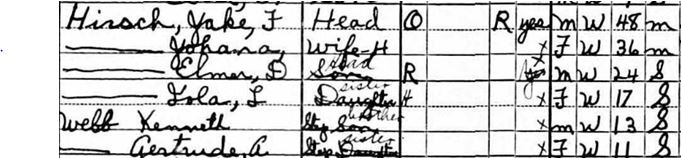 Hirsch, Jake, F Head O R yes m W 48 m
—— Johana, Wife-H x F W 36 m
—— Elmer, D Son R yes m W 24 S
—— Lola, L Daughter sister H x F W 17 S
Webb Kenneth Step Son brother x m W 13 S
—— Gertrude, A Step Daughter sister x F W 11 S